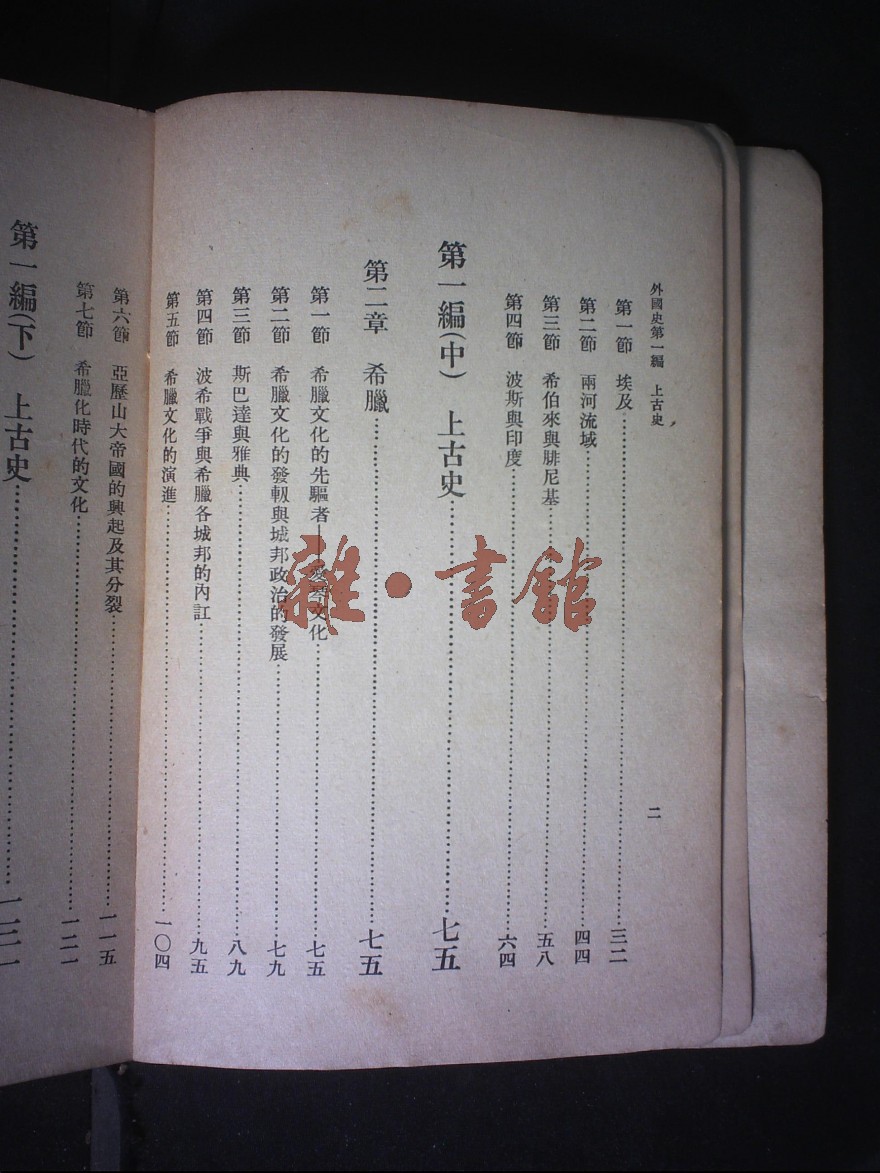 外國史第一編　上古史
二
第一節　埃及……三二
第二節　兩河流域……四四
第三節　希伯來與腓尼基……五八
第四節　波斯與印度……六四
第一編(中)　上古史……七五
第二章　希臘……七五
第一節　希臘文化的先驅者——愛琴文化……七五
第二節　希臘文化的發軔與城邦政治的發展……七九
第三節　斯巴達與雅典……八九
第四節　波希戰爭與希臘各城邦的內訌……九五
第五節　希臘文化的演進……一〇四
第六節　亞歷山大帝國的興起及其分裂……一一五
第七節　希臘化時代的文化……一二一
第一編(下)　上古史……
雜·書館